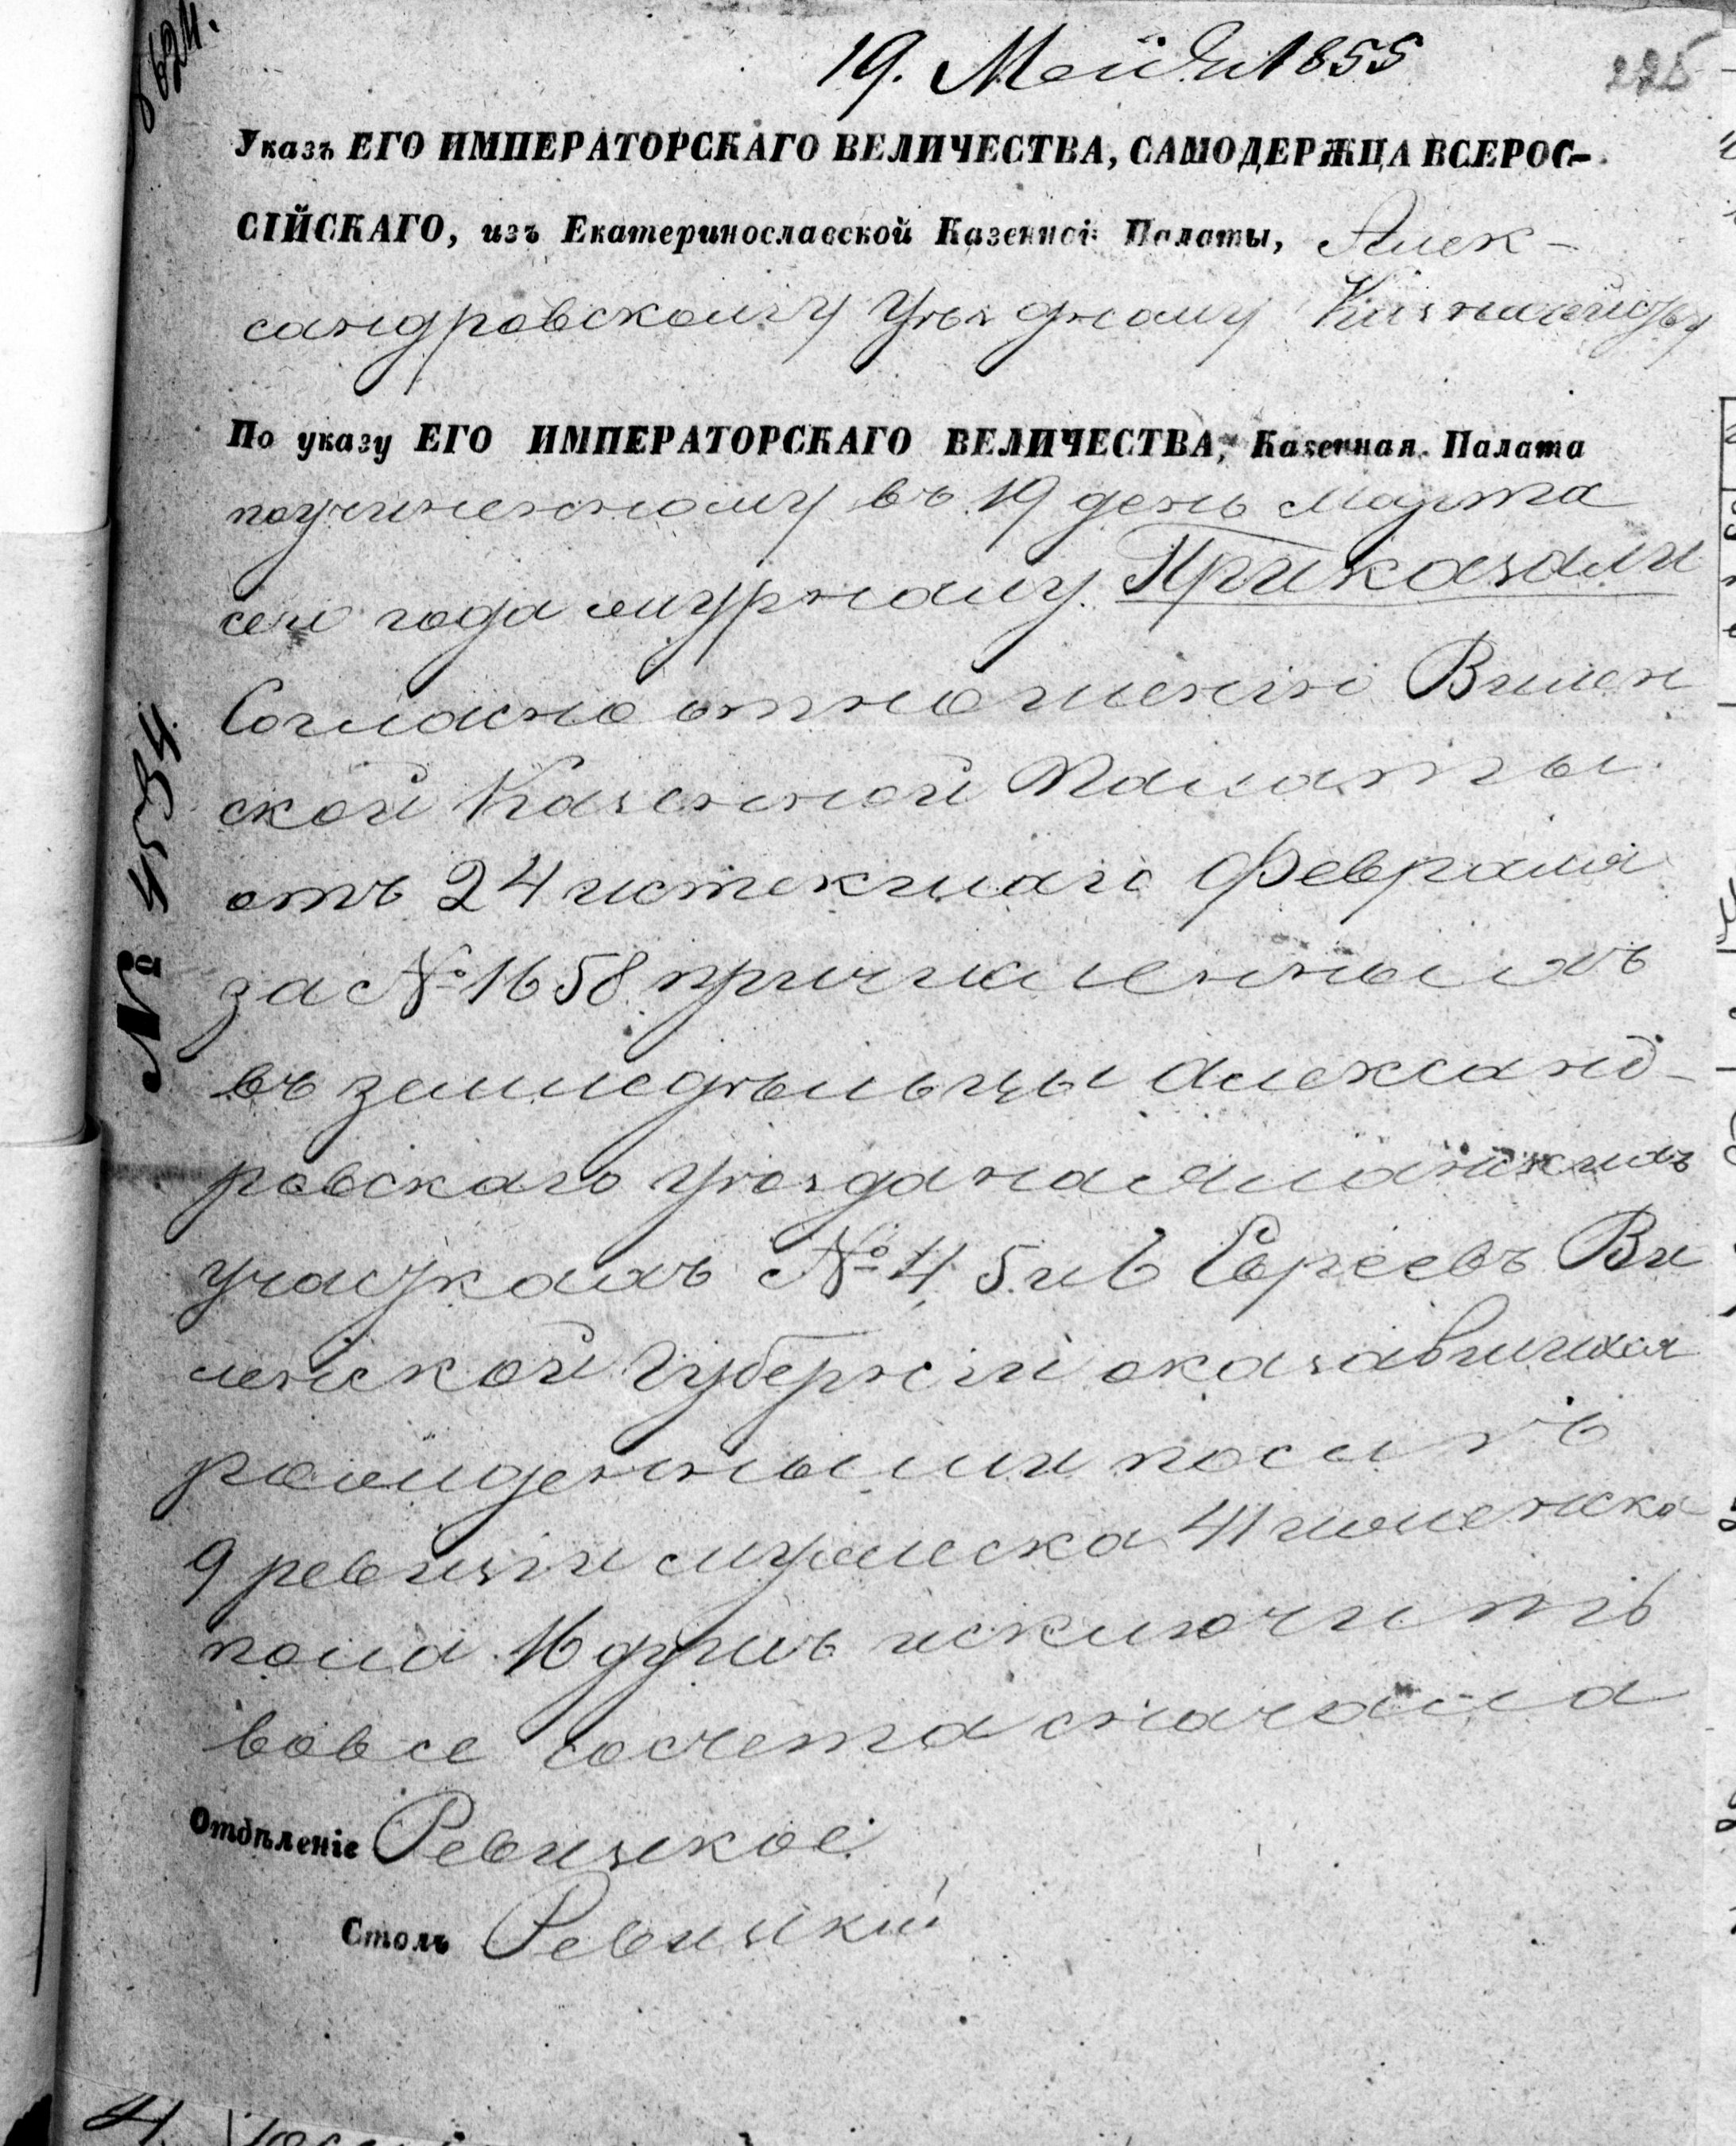 19. Мая 1855
225
Указъ ЕГО ИМПЕРАТОРСКАГО ВЕЛИЧЕСТВА, САМОДЕРЖЦА ВСЕРОС-
СІЙСКАГО, изъ Екатеринославской Казенной Палаты, Алек-
сандровскому Уѣздному Казначейству
По указу ЕГО ИМПЕРАТОРСКАГО ВЕЛИЧЕСТВА, Казенная Палата
поучиненному въ 19 день Марта
сего года журналу. Приказали
Согласно отношенію Вилен
ской Казенной Палаты
отъ 24 истекшаго Февраля
за № 1658 причисленныхъ
въ земледѣльцы Александ-
ровскаго Уѣзда на
участкахъ № 4, 5 и 6 Евреевъ Ви
ленской Губерніи оказавшихся
рожденными послѣ
9 ревизіи мужеска 41 и женска
пола 16 душъ исключить
вовсе со счета сначала
Отдѣленіе Ревизское
Столъ Ревизскій
№ 4554
4